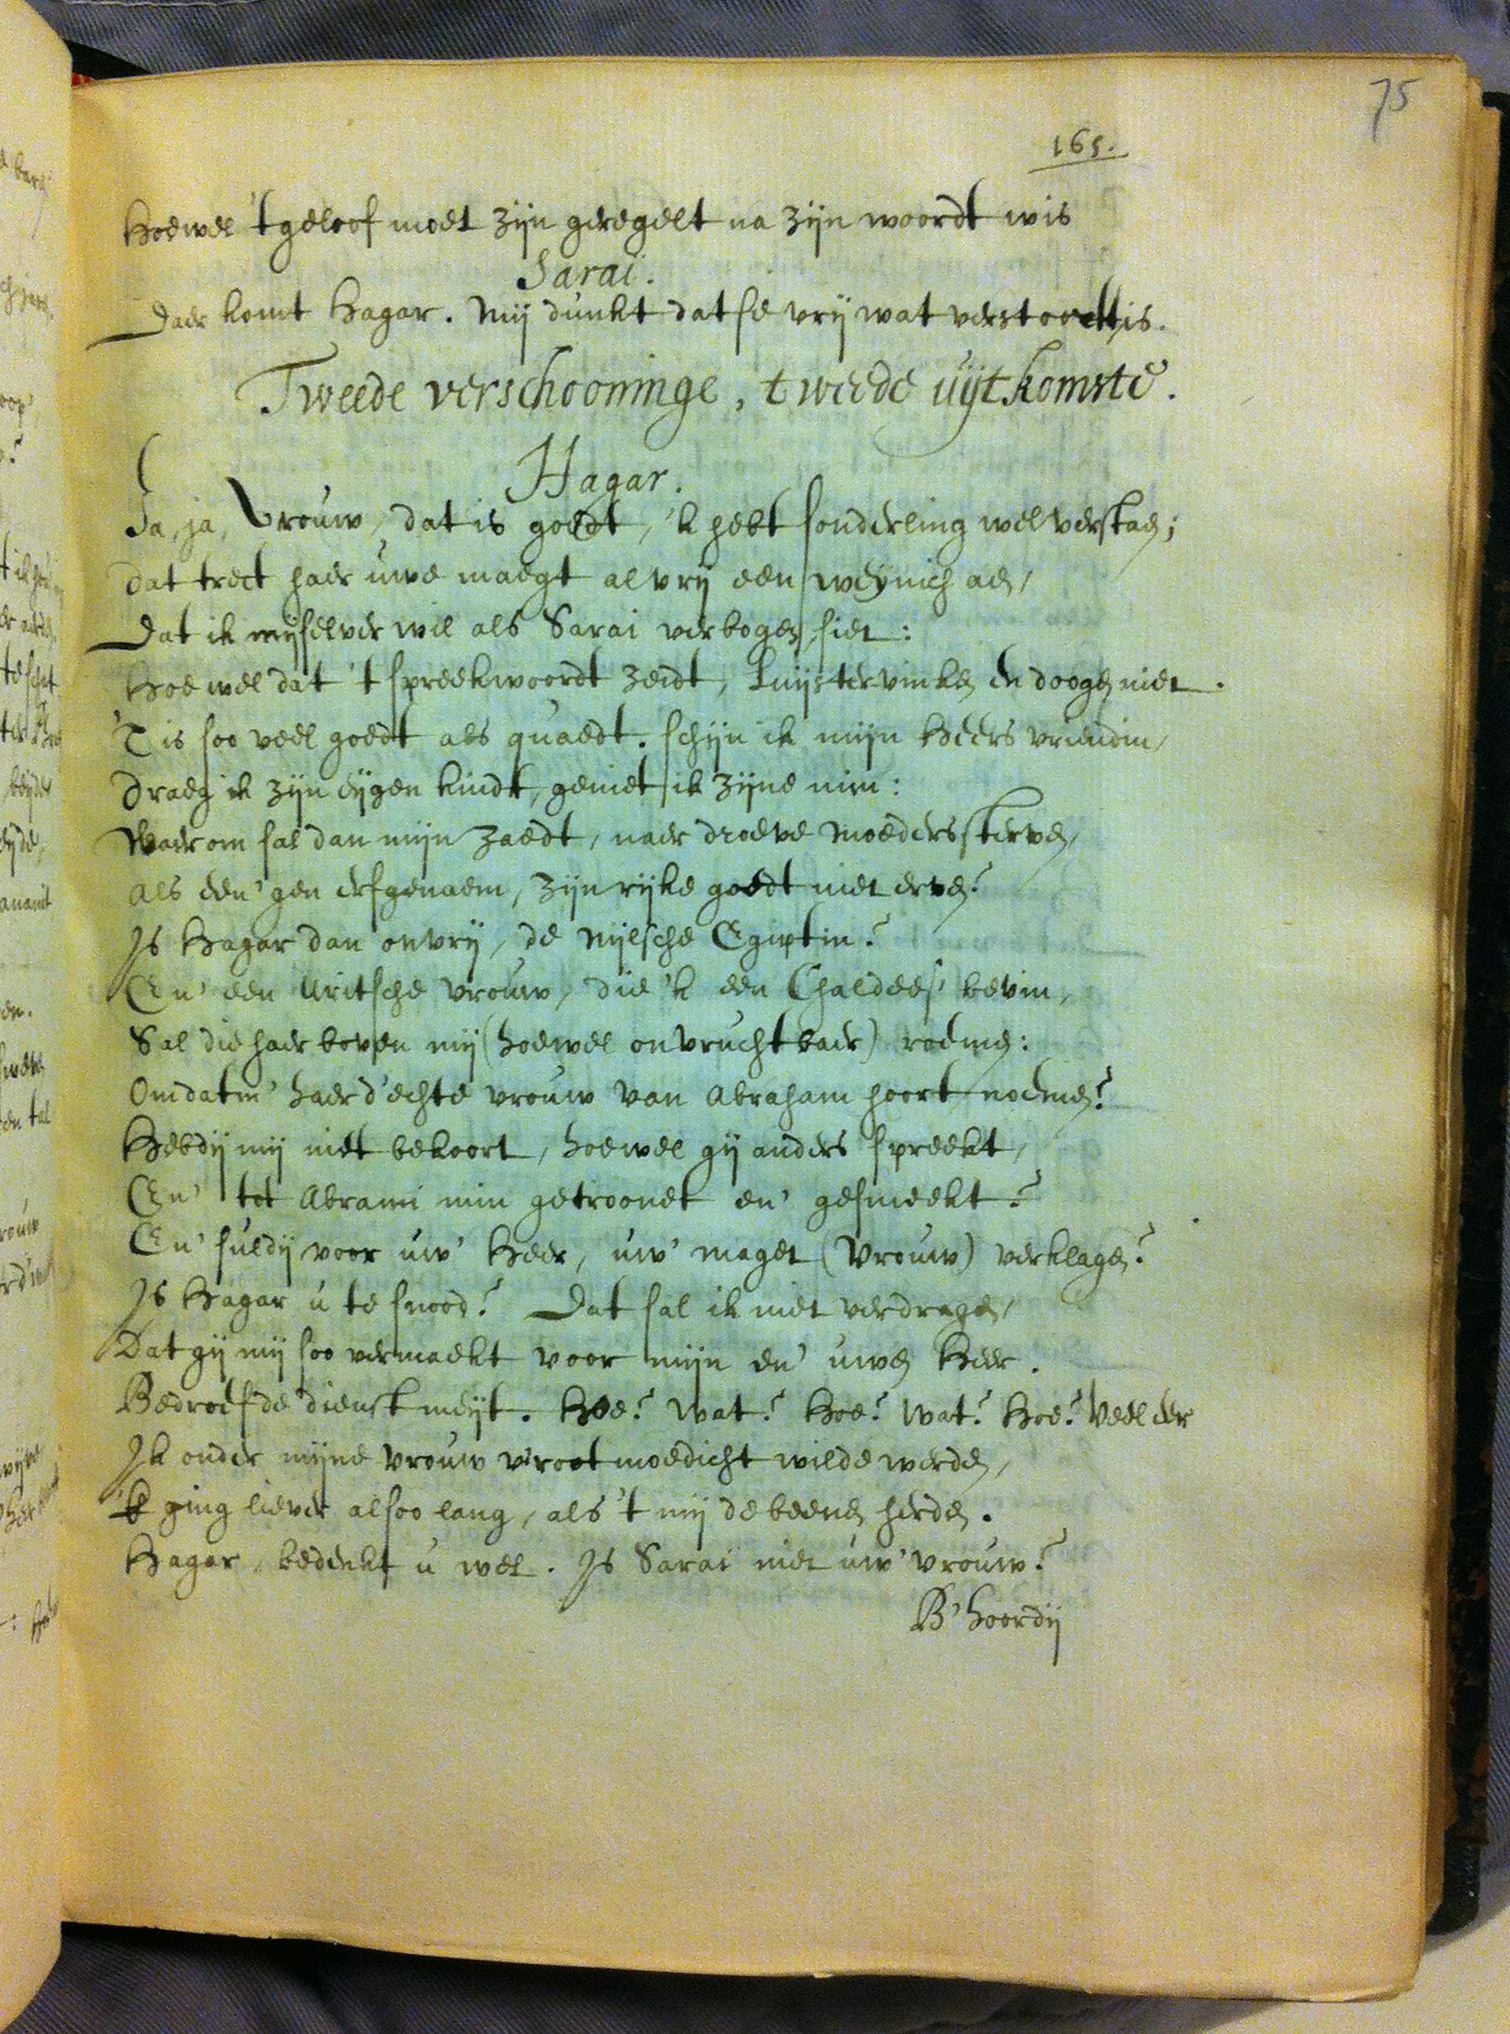 75
165.
Hoewel 't geloof moet zijn geregelt na zijn woordt wis
Sarai.
Daer komt Hagar. Mij dunkt dat se vrij wat verstoort is.
Tweede verschooninge, tweede uijtkomste.
Hagar.
Ja, ja, Vrouw, dat is goedt, 'k hebt sonderling wel verstaen;
dat trect haer uwe maegt al vrij een weÿnich aen,
Dat ik mijselver wil als Sarai verbogen siet:
Hoe wel dat 't spreekwoordt zeidt, Luijstervinken en doogen niet.
'T is soo veel goedt als quaedt. schijn ik mijn Heers vriendin,
draeg ik zijn eijgen kindt, geniet ik zijne min:
Waerom sal dan mijn zaedt, naer droeve moeders sterven,
als een' gen erfgenaem, zijn rijke goedt niet erven?
Is Hagar dan onvrij, de Nijlsche Egiptin?
En' een Uritsche vrouw, die 'k een Chaldees' bevin,
Sal die haer boven mij (hoewel onvruchtbaer) roemen:
Omdatm' haer d'echte vrouw van Abraham hoort noemen?
Hebdij mij niet bekoort, hoewel gij anders spreekt,
En' tot Abrami min getroonet en' gesmeekt?
En' suldij voor uw' Heer, uw' maget (Vrouw) verklagen?
Is Hagar u te snood? Dat sal ik niet verdragen,
Dat gij mij soo vermaekt voor mijn en' uwen Heer.
Bedroefde dienstmeijt. Hoe? wat? Hoe? wat? Hoe? Veel eer
Ik onder mijne vrouw v'rootmoedicht wilde werden,
'k ging liever alsoo lang, als 't mij de beenen herden.
Hagar, bedenkt u wel. Is Sarai niet uw' vrouw?
B'hoordij